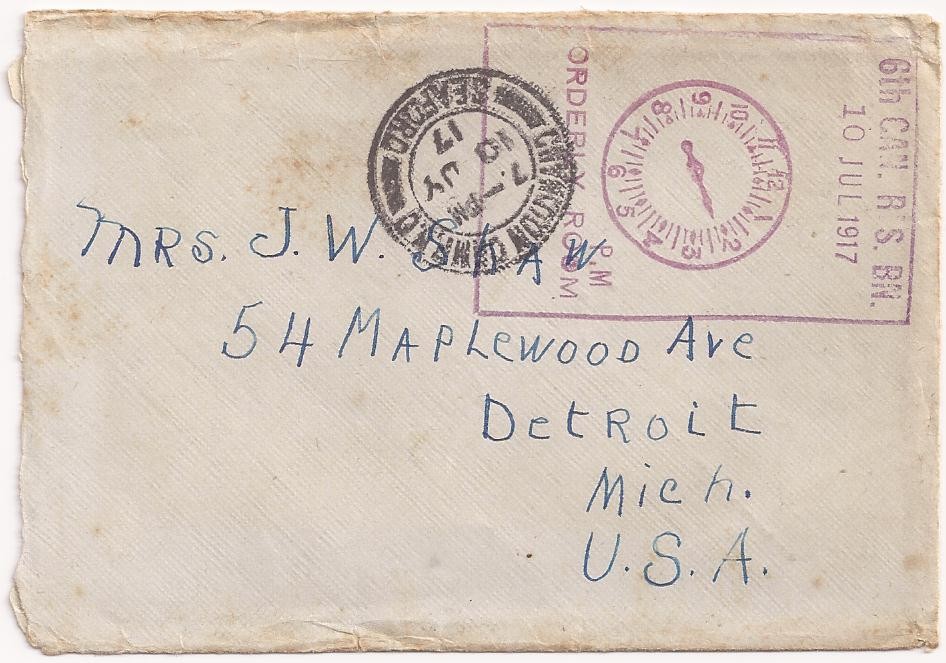 6th CAN. R'S. BN.
10 JUL 1917
12 1 2 3 4 5 6 7 8 9 10 11
P.M
ORDERLY ROOM
CHYNGTON CAMP
7 - PM
10 JY
17
SEAFORD
MRS. J. W. SHAW
54 MAPLEWOOD AVE
DETROIT
Mich.
U.S.A.